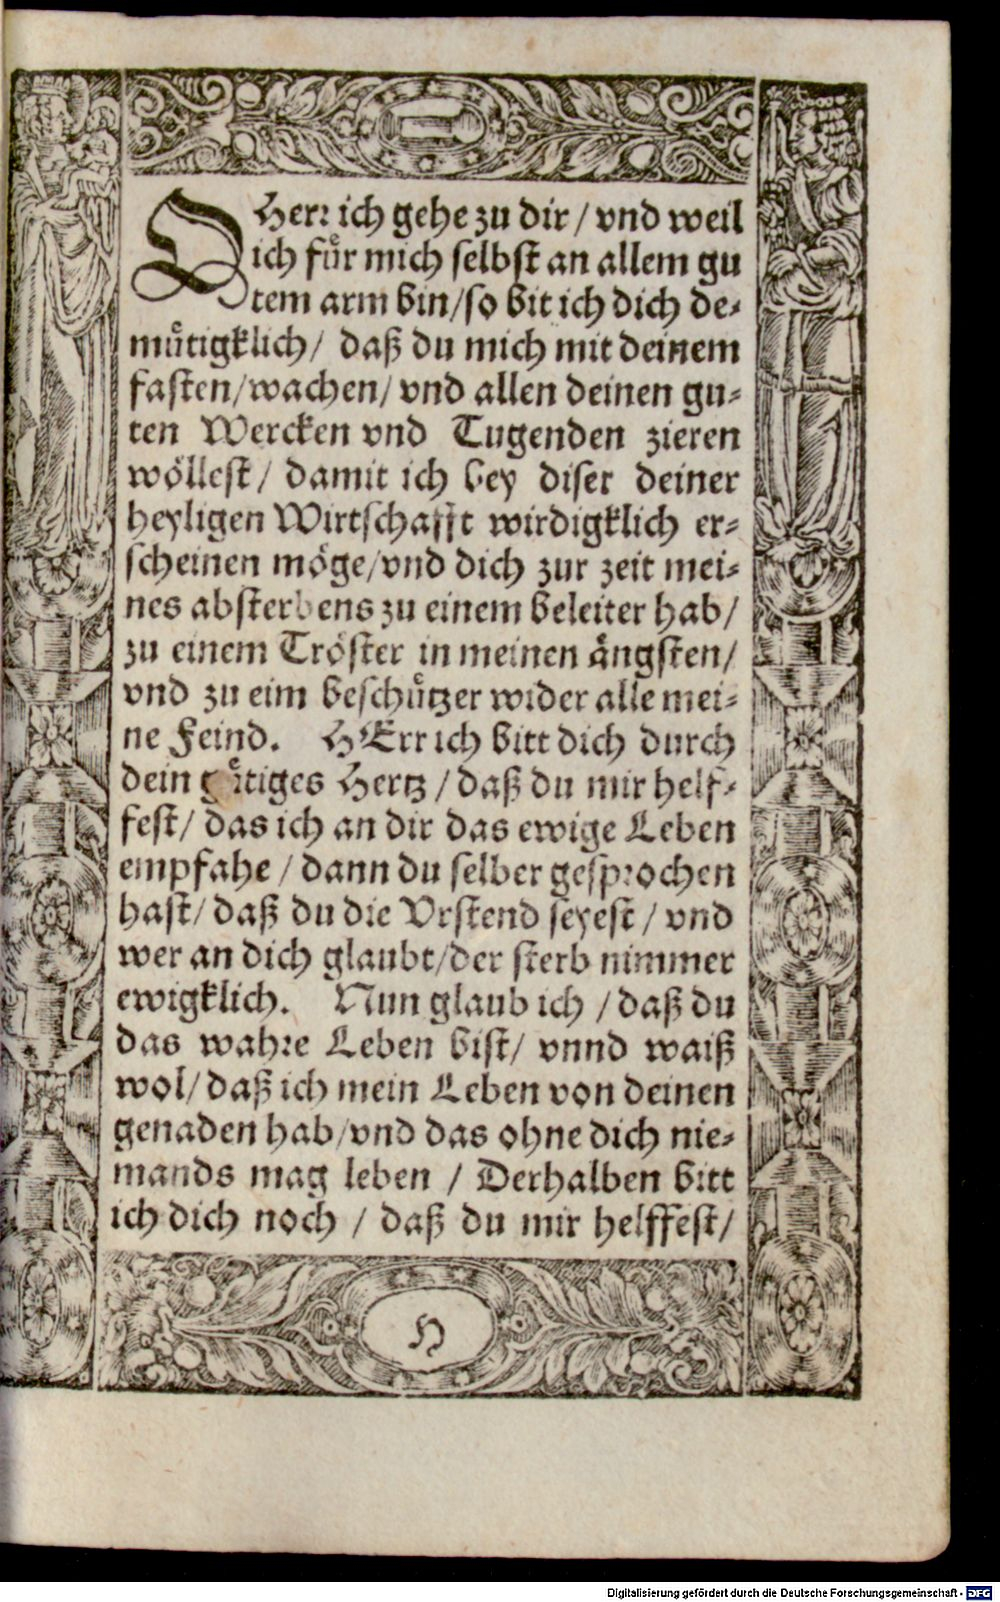 O Herr ich gehe zu dir / vnd weil
ich fuͤr mich selbst an allem gu
tem arm bin / so bit ich dich de-
muͤtigklich / daß du mich mit deinem
fasten / wachen / vnd allen deinen gu-
ten Wercken vnd Tugenden zieren
wöllest / damit ich bey diser deiner
heyligen Wirtschafft wirdigklich er-
scheinen möge / vnd dich zur zeit mei-
nes absterbens zu einem beleiter hab /
zu einem Tröster in meinen aͤngsten /
vnd zu eim beschuͤtzer wider alle mei-
ne Feind. HErr ich bitt dich durch
dein guͤtiges Hertz / daß du mir helf-
fest / das ich an dir das ewige Leben
empfahe / dann du selber gesprochen
hast / daß du die Vrstend seyest / vnd
wer an dich glaubt / der sterb nimmer
ewigklich. Nun glaub ich / daß du
das wahre Leben bist / vnnd waiß
wol / daß ich mein Leben von deinen
genaden hab / vnd das ohne dich nie-
mands mag leben / Derhalben bitt
ich dich noch / daß du mir helffest /
H
Digitalisierung gefördert durch die Deutsche Forschungsgemeinschaft - DFG